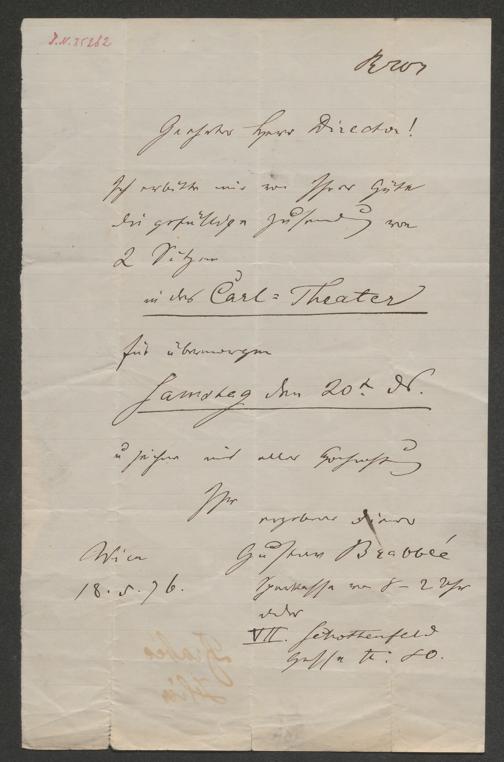 I.N. 35282
Geehrter Herr Director!
Ich erbitte mir von Ihrer Güte
die gefällige Zusendung von
2 Sitzen
in das Carl=Theater
für übermorgen
Samstag den 20t. ds.
u zeichne mit aller Hochachtung
Ihr
ergebener Diener
Gustav Brabbée
Wien
18.5.76.
Sparkassa von 8–2 Uhr
oder
VII. Schottenfeld
Gasse N: 80.